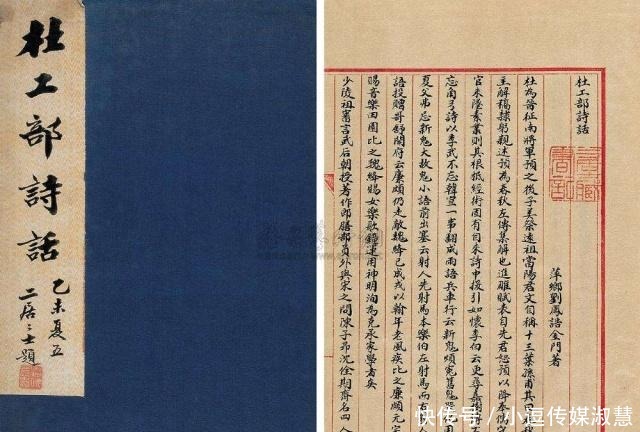 杜工部詩話
乙未夏五
士題
杜工部詩話
萍鄉劉鳳誥金門著
杜為晉征南將軍預之後子美祭遠祖當陽君文自稱十三葉孫甫其曰
主解稿隸躬親述預為春秋左傳集解也進雕賦表自先君恕預以降奉儒守
官未墜素業則具根抵經術固有自來詩中援引如懷李伯云更尋嘉樹
忘角弓詩以季武不忘韓宣一事翻成兩語兵車行云新鬼煩冤舊鬼
夏父弗忌新鬼大故鬼小語前出塞云射人先射馬本樂伯左射馬而右
語投贈哥舒開府云廉頗仍走敵魏絳已成戎以翰年老風疾比之廉頗元
賜音樂田園比之魏絳賜女樂歌鐘運用神明洵為克承家學者矣
少陵祖審言武后朝授著作郎膳部員外與宋之問陳子昂沈佺期齊名四人
快传号/小逗传媒淑慧